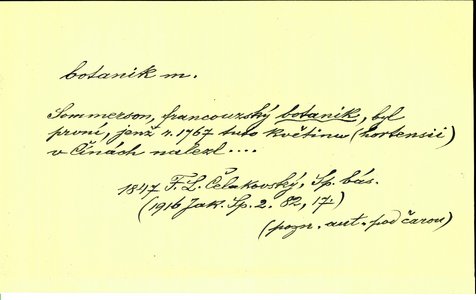 botanik m.
Sommerson, francouzský botanik, byl
první, jenž r. 1767 tuto květinu (hortensii)
v Čínách nalezl....
1847 F. L. Čelakovský, Sp. bás.
(1916 Jak. Sp. 2. 82, 17.)
(pozn. aut. pod čarou)